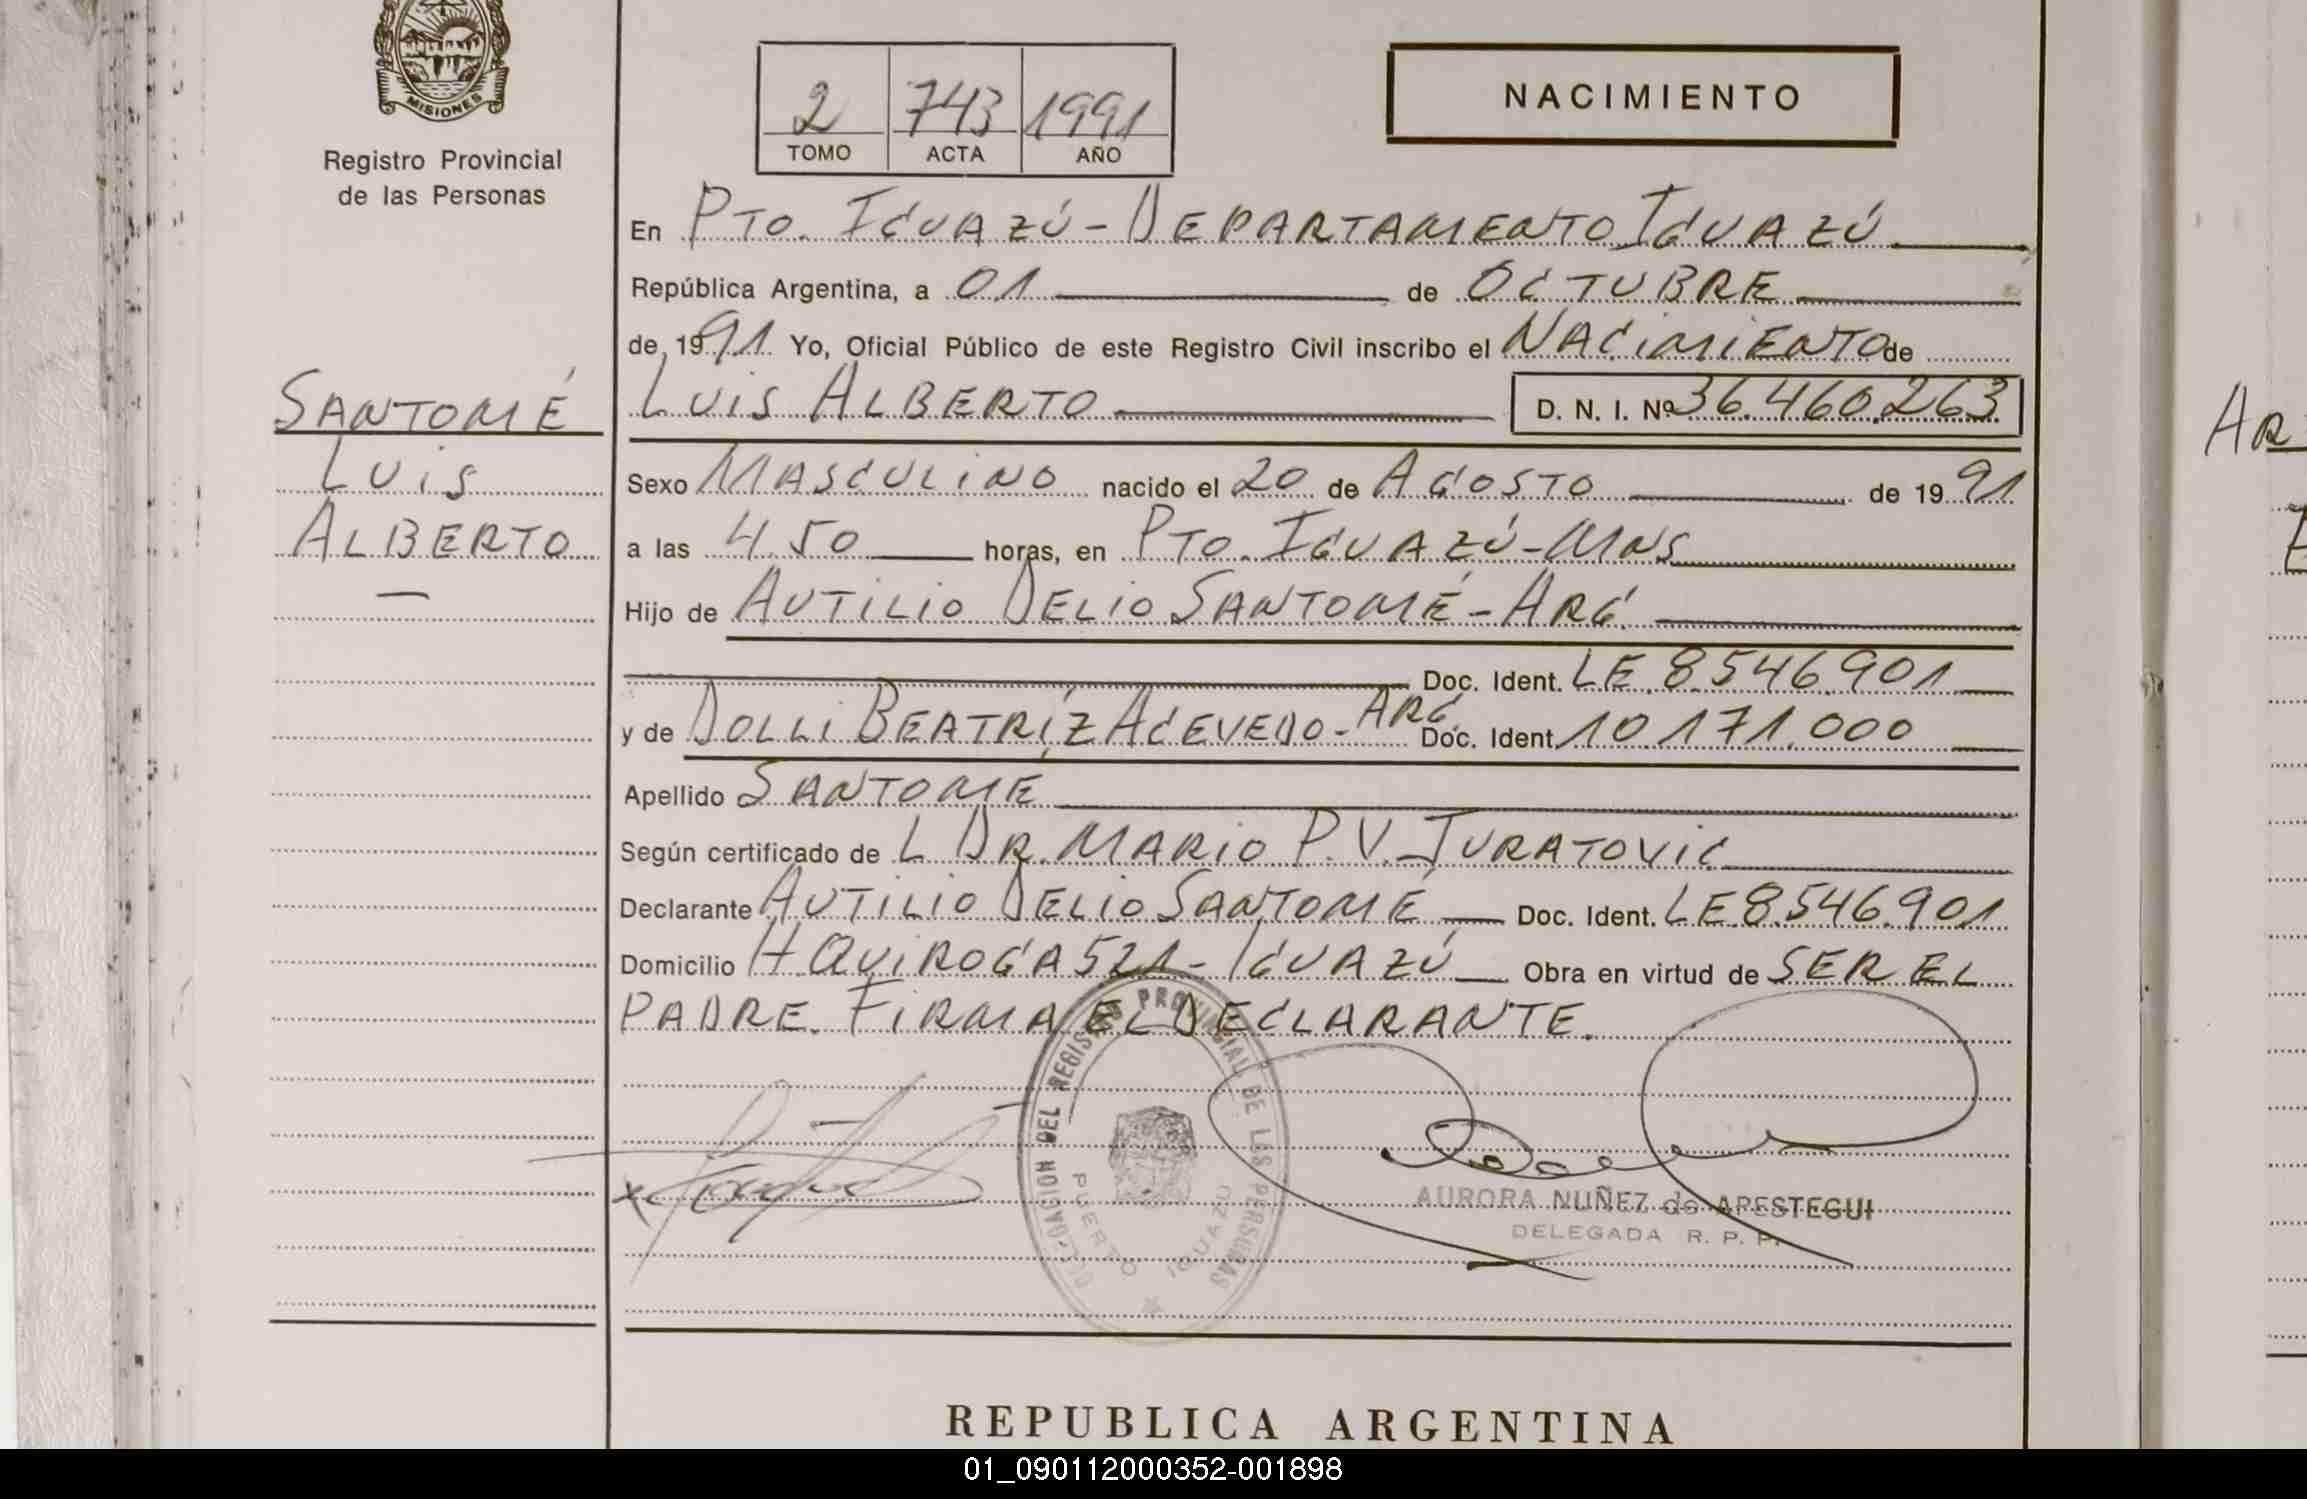 MISIONES
Registro Provincial
de las Personas
2 743 1991
TOMO ACTA AÑO
NACIMIENTO
En PTO. IGUAZÚ - DEPARTAMENTO IGUAZÚ
República Argentina, a 01 de OCTUBRE
de 1991 Yo, Oficial Público de este Registro Civil inscribo el NACIMIENTO de
LUIS ALBERTO D. N. I. Nº 36.460.263
SANTOMÉ
LUIS
ALBERTO
Sexo MASCULINO nacido el 20 de AGOSTO de 1991
a las 4.50 horas, en PTO. IGUAZÚ - MNS
Hijo de AUTILIO DELIO SANTOMÉ - ARG.
Doc. Ident. LE 8.546.901
y de DOLLI BEATRÍZ ACEVEDO - ARG. Doc. Ident. 10.171.000
Apellido SANTOMÉ
Según certificado de L DR. MARIO P. V. JURATOVIC
Declarante AUTILIO DELIO SANTOMÉ Doc. Ident. LE 8.546.901
Domicilio H QUIROGA 521 - IGUAZÚ Obra en virtud de SER EL
PADRE. FIRMA EL DECLARANTE.
DELEGACION DEL REGISTRO PROVINCIAL DE LAS PERSONAS
PUERTO IGUAZU
AURORA NUÑEZ de APESTEGUI
DELEGADA R. P. P.
REPUBLICA ARGENTINA
01_090112000352-001898